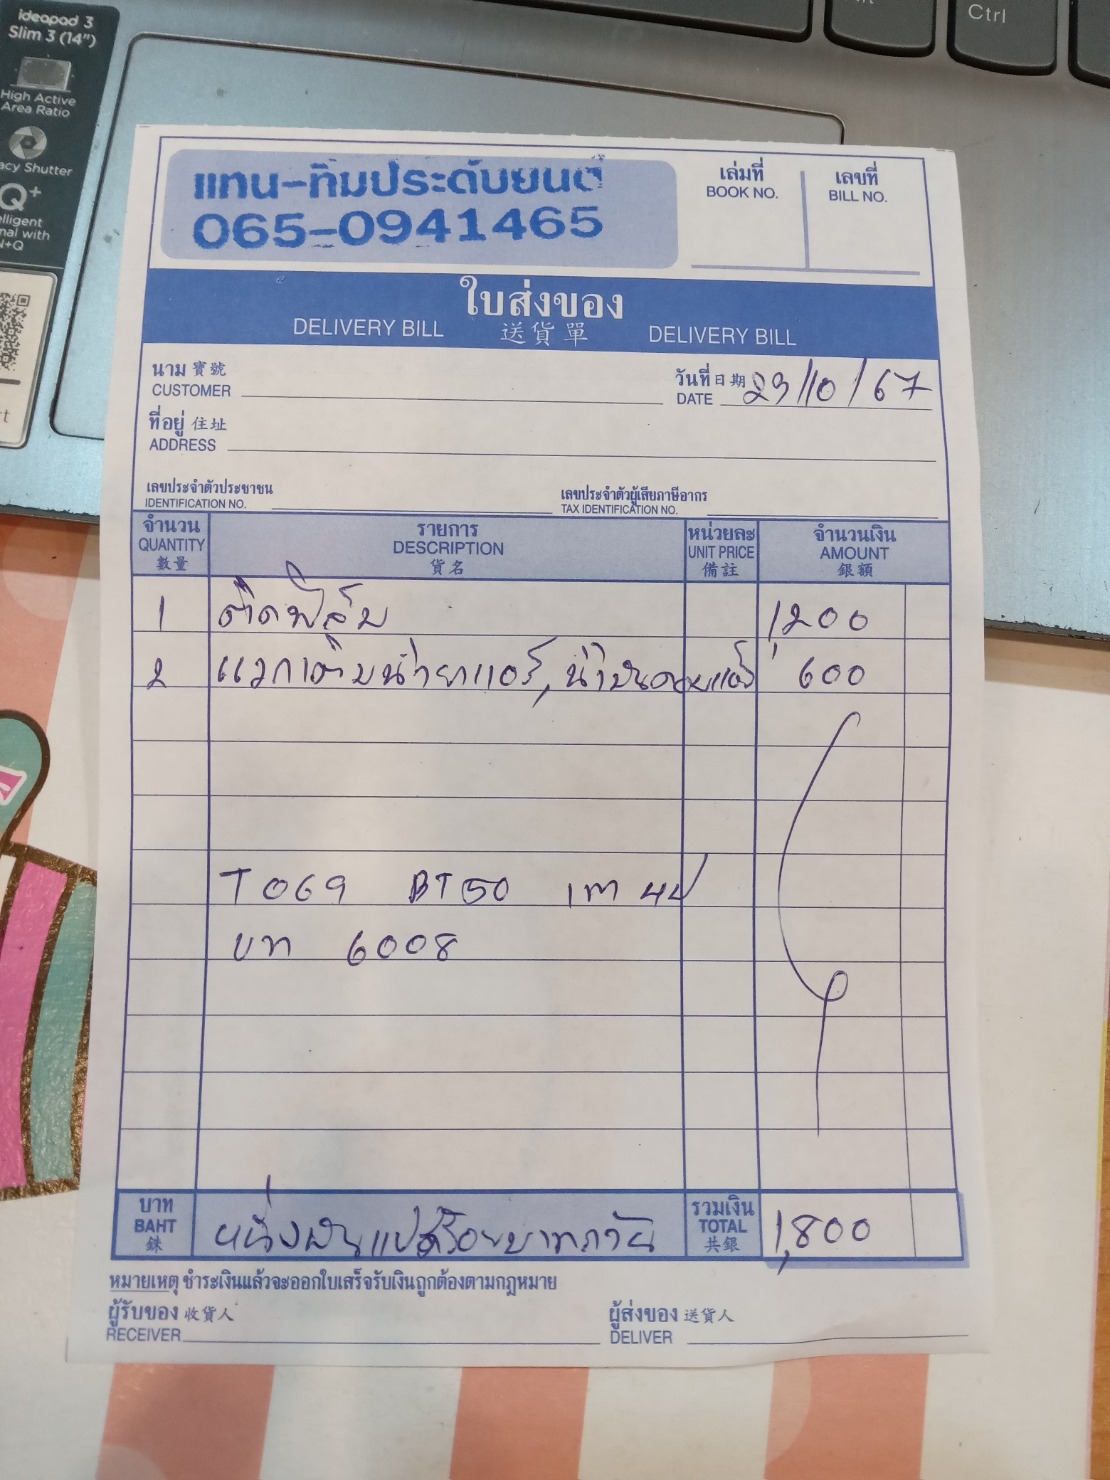 ideapad 3
Slim 3 (14")
High Active
Area Ratio
acy Shutter
Q+
elligent
nal with
N+Q
Ctrl
แทน-ทิมประดับยนต์
065-0941465
เล่มที่
BOOK NO.
เลขที่
BILL NO.
ใบส่งของ
DELIVERY BILL 送貨單 DELIVERY BILL
นาม 寶號
CUSTOMER
วันที่ 日期
DATE 29/10/67
ที่อยู่ 住址
ADDRESS
เลขประจำตัวประชาชน
IDENTIFICATION NO.
เลขประจำตัวผู้เสียภาษีอากร
TAX IDENTIFICATION NO.
จำนวน รายการ หน่วยละ จำนวนเงิน
QUANTITY DESCRIPTION UNIT PRICE AMOUNT
數量 貨名 備註 銀額
1 ติดฟิล์ม 1,200
2 แวกเติมน้ำยาแอร์, น้ำมันคอมแอร์ 600
T069 BT50
บท 6008
บาท
BAHT
銖
หนึ่งพันแปดร้อยบาทถ้วน
รวมเงิน
TOTAL
共銀
1,800
หมายเหตุ ชำระเงินแล้วจะออกใบเสร็จรับเงินถูกต้องตามกฎหมาย
ผู้รับของ 收貨人
RECEIVER
ผู้ส่งของ 送貨人
DELIVER